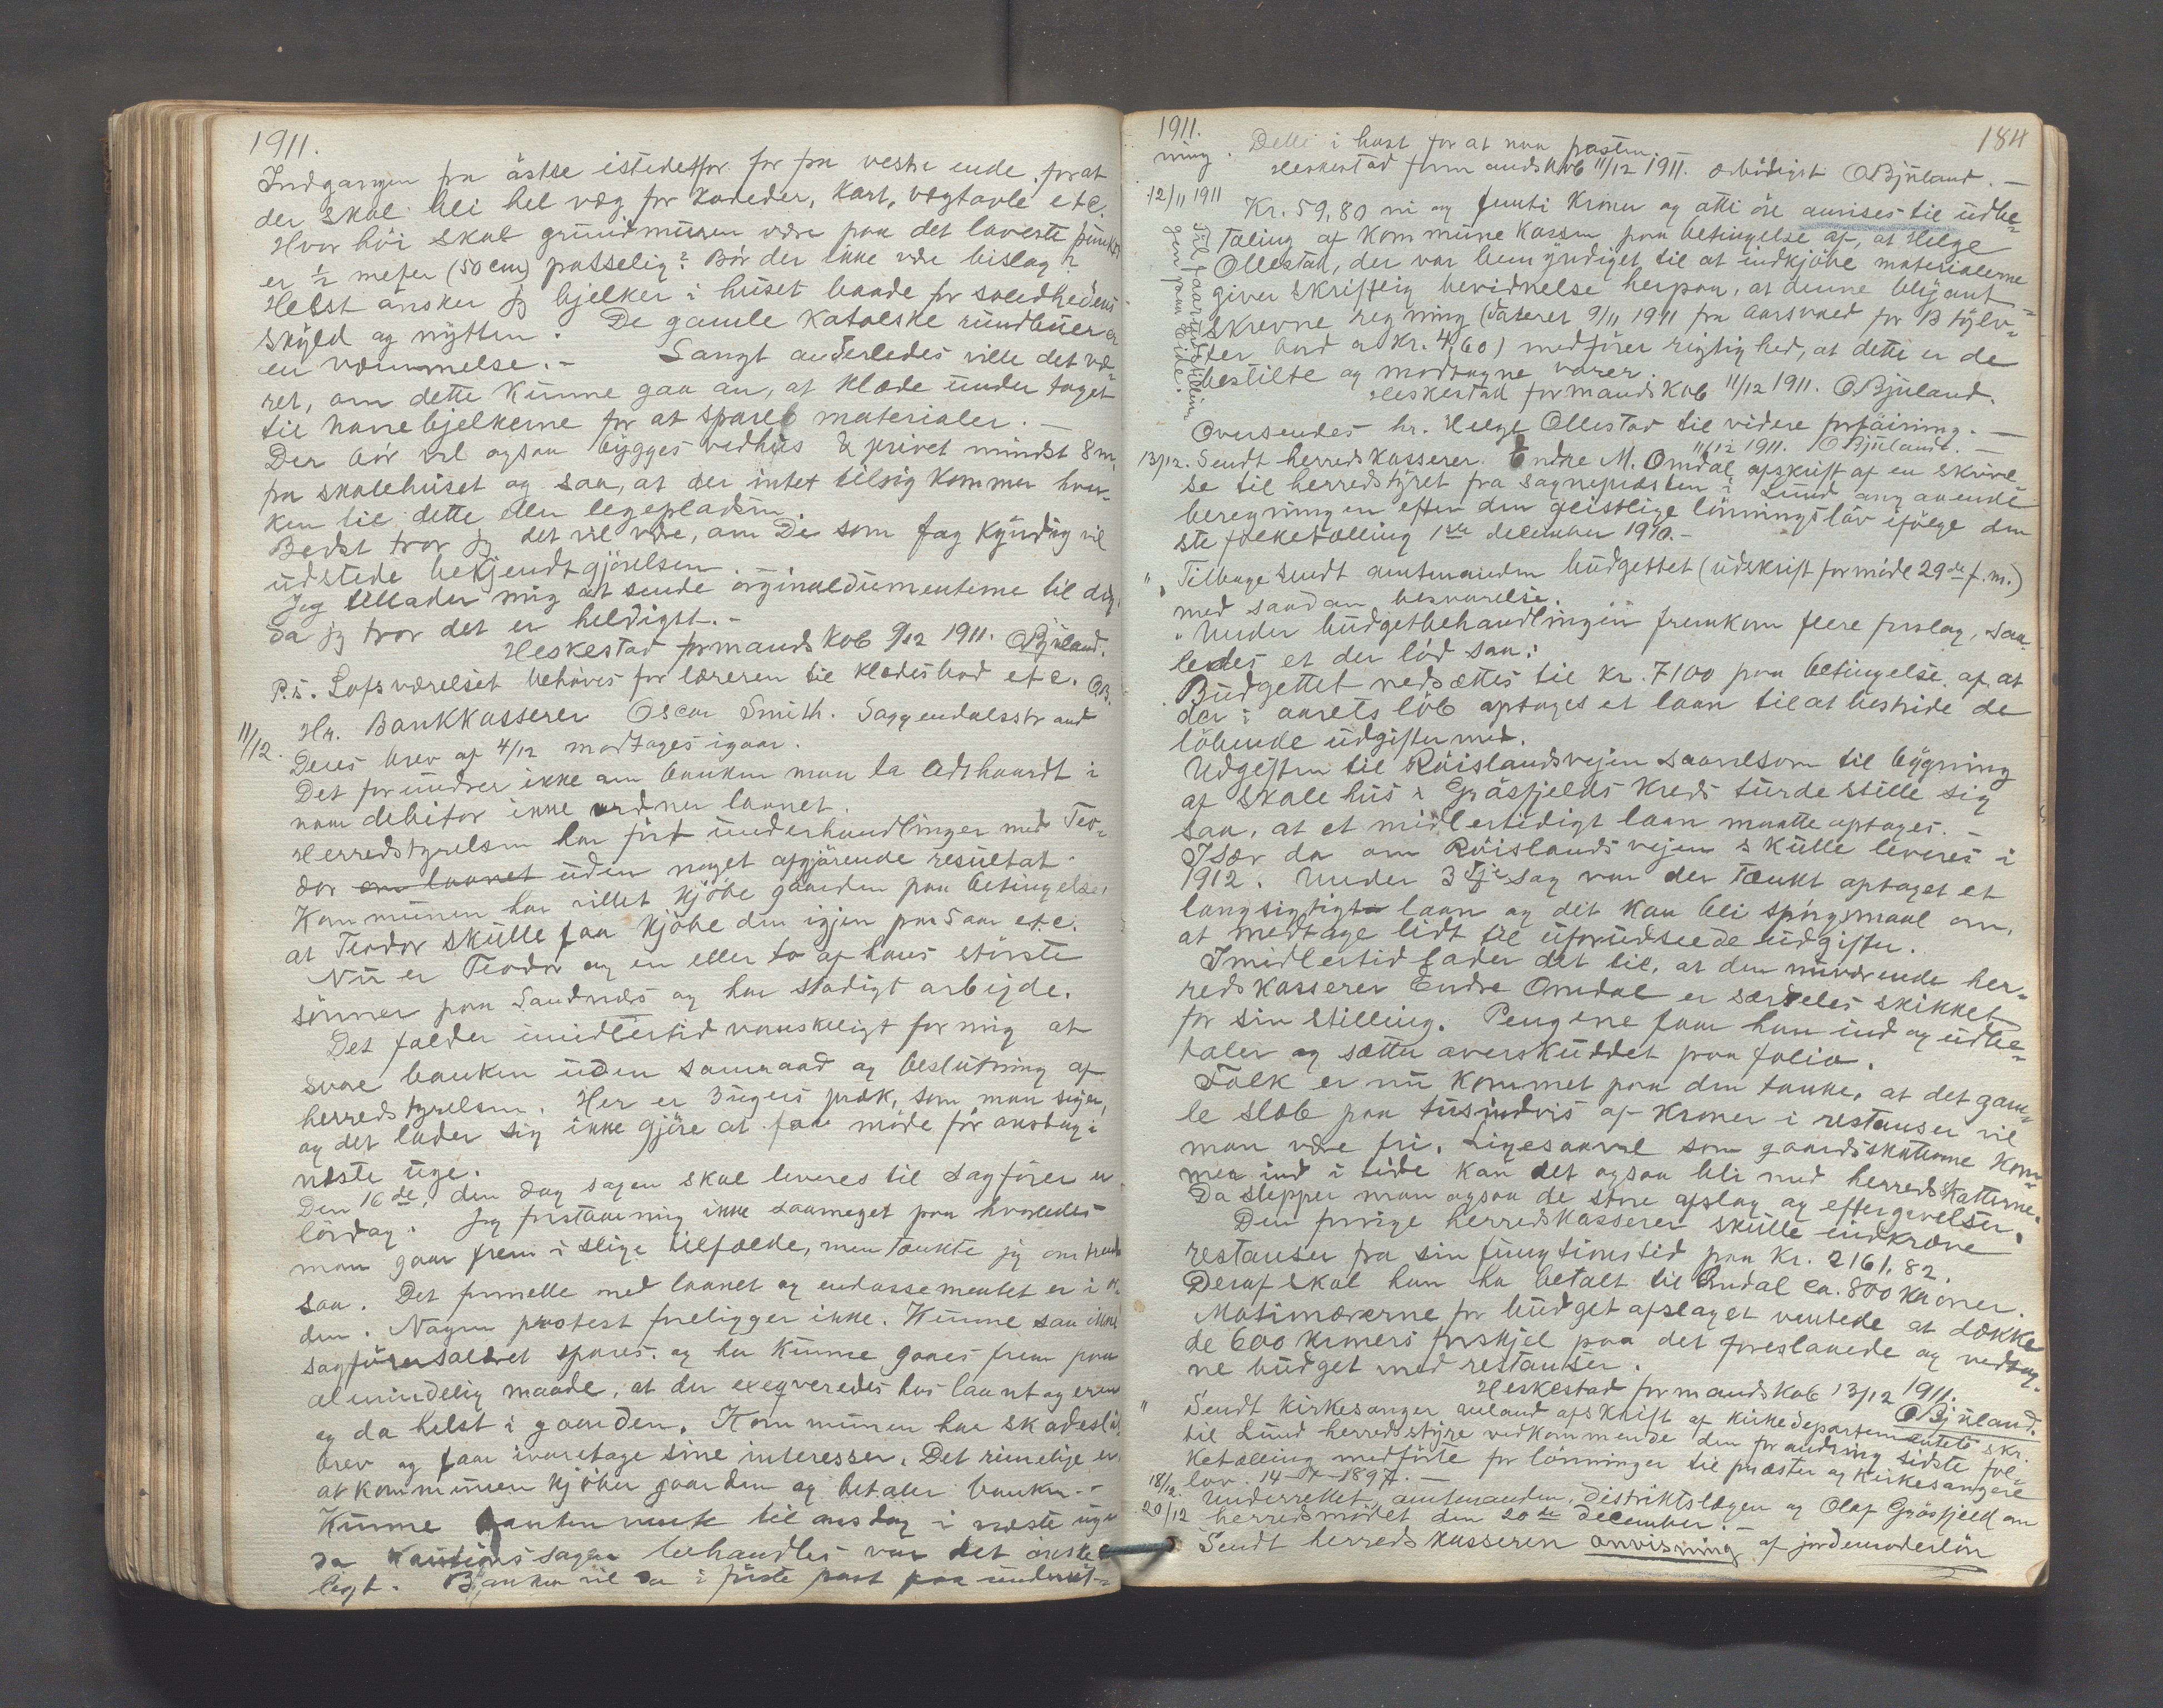 1911.
Indgangen fra östre istedetfor for fra vestre ende, for at
der skal bli hel væg for Karder, Kart, vægtavle etc.
Hvor höi skal grundmuren være paa det laveste punkt
er ½ meter (50 cm) passelig? Bör der ikke være bislag?
Helst ansker jeg bjelker i huset baade for soliedhedens
skyld og nytten. De gamle Katolske rundbuer er
en væmmelse. – Langt anderledes ville det væ-
ret, om dette kunne gaa an, at klæde under taget
til hanebjelkerne for at spare materialer. –
Der bör vel ogsaa bygges vedhus & privet mindst 8 m.
fra skolehuset og saa, at der intet tilsig kommer hver-
ken til dette eller legepladsen.
Bedst tror jeg det vil være, om De som fag kyndig vil
udstede bekjendtgjörelsen. –
Jeg tillader mig at sende orginaldumenterne til dig,
da jeg tror det er heldigst. –
Heskestad formandskab 9/12 1911. OBjuland.
P.S. Lofsværelset behöves for læreren til klædesbod etc. OB.
11/12. Hr. Bankkasserer Oscar Smith. Soggendalsstrand
Deres brev af 4/12 modtages igaar.
Det forundrer ikke om banken maa ta lidt haardt i
naar debitor ikke ordner laanet.
Herredstyrelsen har fört underhandlinger med Teo-
dor om laanet uden noget afgjörende resultat.
Kommunen har villet kjöbe gaarden paa betingelse,
at Teodor skulle faa kjöbe den igjen paa 5 aar etc.
Nu er Teodor og en eller to af hans störste
sönner paa Sandnæs og har stadigt arbejde.
Det falder imidlertid vanskeligt for mig at
svare banken uden samraad og beslutning af
herredstyrelsen. Her er 3 ugers præk, som man siger,
og det lader sig ikke gjöre at faa möde för onsdag i
næste uge.
Den 16de, den dag sagen skal leveres til sagförer er
lördag. Jeg forstaar mig ikke saameget paa hvorledes
man gaar frem i slige tilfælde, men tænkte jeg om
saa. Det formelle med laanet og endossementet er i or-
den. Nogen protest foreligger ikke. Kunne saa ikke
sagförersalæret spares. og her kunne gaaes frem paa
almindelig maade, at der exeqveredes hos laant ageren
og da helst i gaarden. Kommunen har skadeslös
brev og faar ivaretage sine interesser. Det rimelige er
at kommunen kjöber gaarden og betaler banken. –
Kunne banken vente til onsdag i næste uge
da Kautionssagen behandles var det önske
ligt. Banken vil da i förste post faa underret-
1911. 184
ning. Dette i hast for at naa posten.
Heskestad formandskab 11/12 1911. Ærbödigst OBjuland. –
12/11 1911 Kr. 59,80 ni og femti kroner og otti öre anvises til udbe-
taling af Kommunekassen paa betingelse af, at Helge
Ollestad, der var bemyndiget til at indkjöbe materialerne
giver skriftlig bevidnelse herpaa, at denne blyant-
skrevne regning (dateret 9/11 1911 fra Aarsvaed for B
ter bord a Kr. 4,60) medförer rigtighed, at dette er de
bestilte og modtagne varer.
Heskestad formandskab 11/12 1911. OBjuland.
Oversendes hr. Helge Ollestad til videre forföining. –
11/12 1911. OBjuland. –
13/12. Sendt herredskasserer Endre M. Omdal afskrift af en skrivel-
se til herredstyret fra sognepræsten i Lund angaaende
beregningen efter den geistlige lönningslov ifölge den
ste folketælling 1ste december 1910. –
" Tilbagesendt amtmanden budgettet (udskrift formöde 29de f.m.)
med saadan besvarelse.
"Under budgetbehandlingen fremkom flere forslag, saa-
ledes et der löd saa:
Budgettet nedsættes til Kr. 7100 paa betingelse af at
der i aarets löb optages et laan til at bestride de
löbende udgifter med.
Udgiften til Röislandsvejen saavelsom til bygning
af skolehus i Gräsfjelds Kreds turde stille sig
saa, at et midlertidigt laan maatte optages. –
Især da om Röislandsvejen skulle leveres i
1912. Under 3dje sag var der tænkt optaget et
langsigtigt laan og det kan bli spörgsmaal om,
at medtage lidt til uforudseede udgifter.
Imidlertid lader det til, at den nuværende her-
redskasserer Endre Omdal er særdeles skikket
for sin stilling. Pengene faar han ind og udbe-
taler og sætter overskuddet paa folio.
Folk er nu kommet paa den tanke, at det gam-
le slæb paa tusindvis af kroner i restanser vil
man være fri. Ligesaavel som gaardsskatterne kom-
mer ind i tide kan det ogsaa bli med herredskatterne.
Da slepper man ogsaa de store afslag og eftergivelser.
Den forrige herredskasserer skulle indkræve
restanser fra sin fungtionstid paa Kr. 2161,82.
Deraf skal han ha betalt til Omdal ca. 800 kroner.
Motimærerne for budget afslaget ventede at dække
de 600 kroners forskjel paa det foreslaaede og vedtag-
ne budget med restanser.
Heskestad formandskab 13/12 1911.
OBjuland.
" Sendt kirkesanger ueland afskrift af Kirkedepartementets skr.
til Lund herredsstyre vedkommende den forandring sidste fol-
ketælling medförte for lönninger til præster og kirkesangere
lov. 14-7-1897. –
18/12. Underrettet amtmanden, distriktslægen og Olaf Gräsfjeld om
herredsmödet den 20de December. –
20/12 Sendt herredskassereren anvisning af jordemoderlön